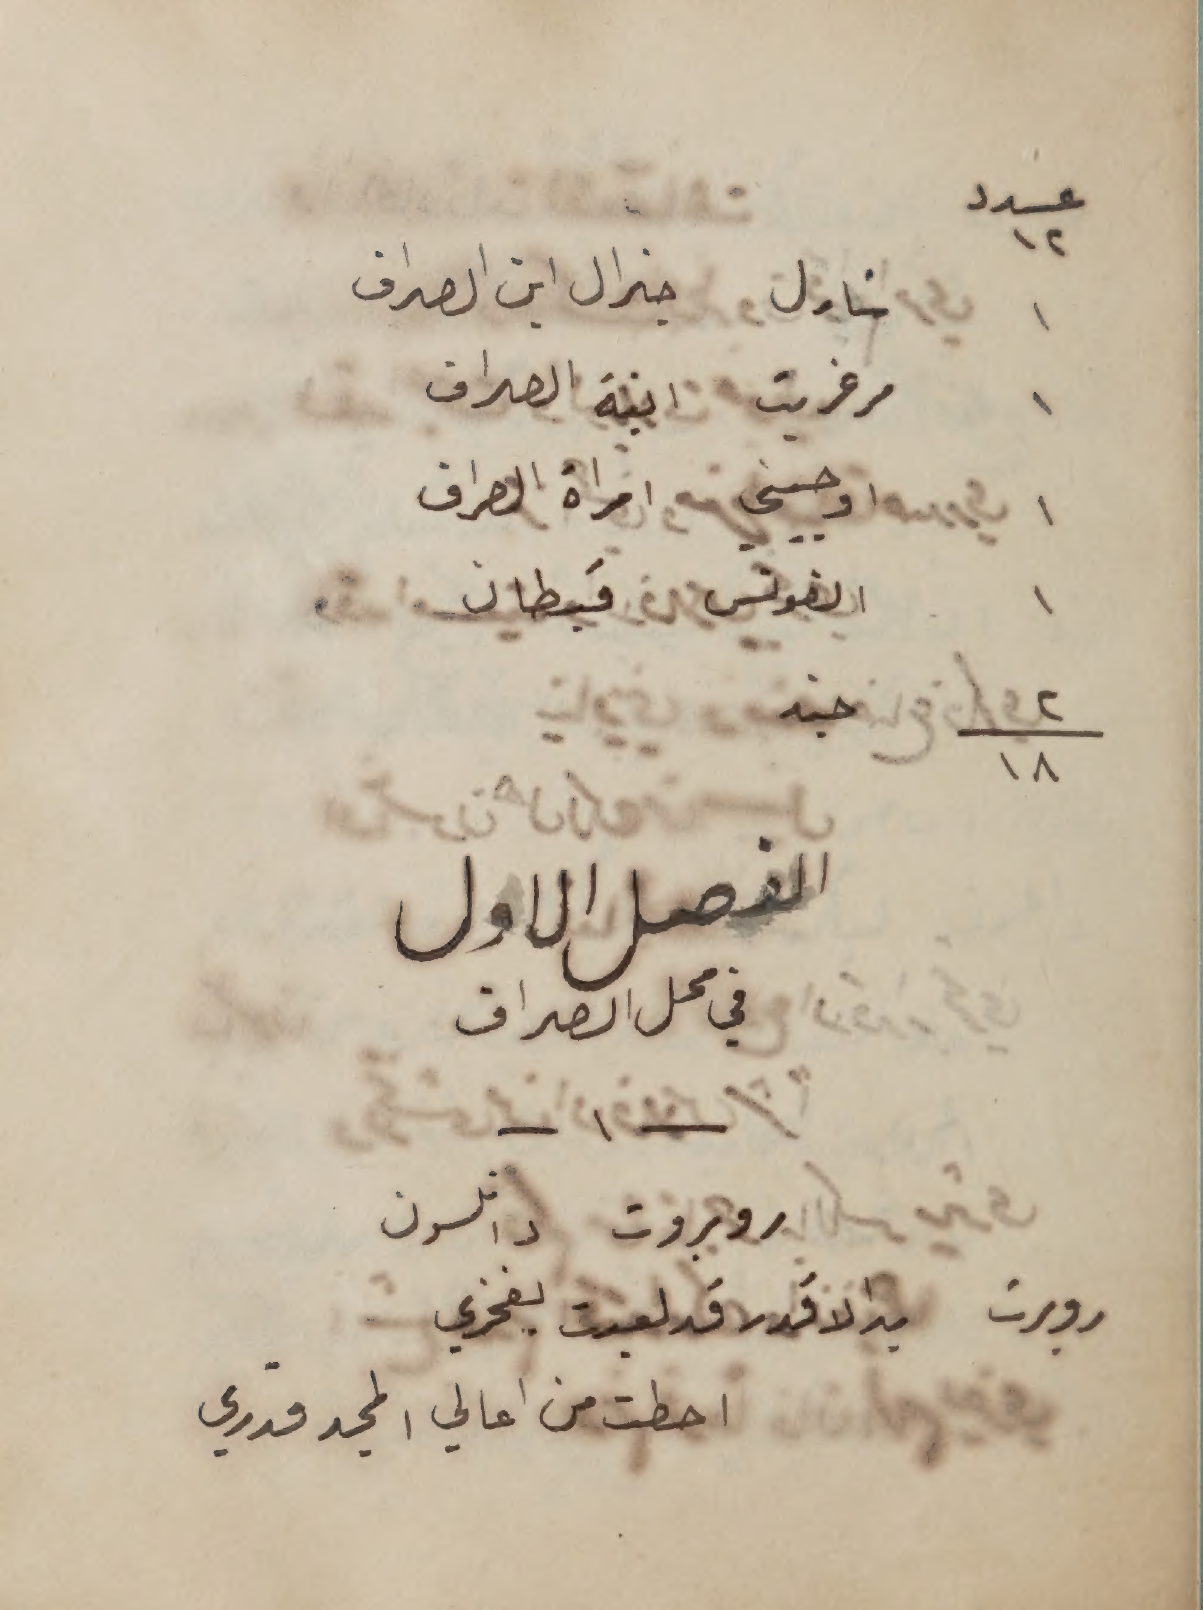 عدد
١٢
١ شارل جنرال ابن الصراف
١ مرغريت ابنة الصراف
١ اوجيني امراة الصراف
١ الفونس قبطان
٢ جند
١٨
الفصل الاول
في محل الصراف
— ١ —
روبروت دانلسون
روبرت يد الاقدار قد لعبت بفخري
احطت من اعالي المجد قدري